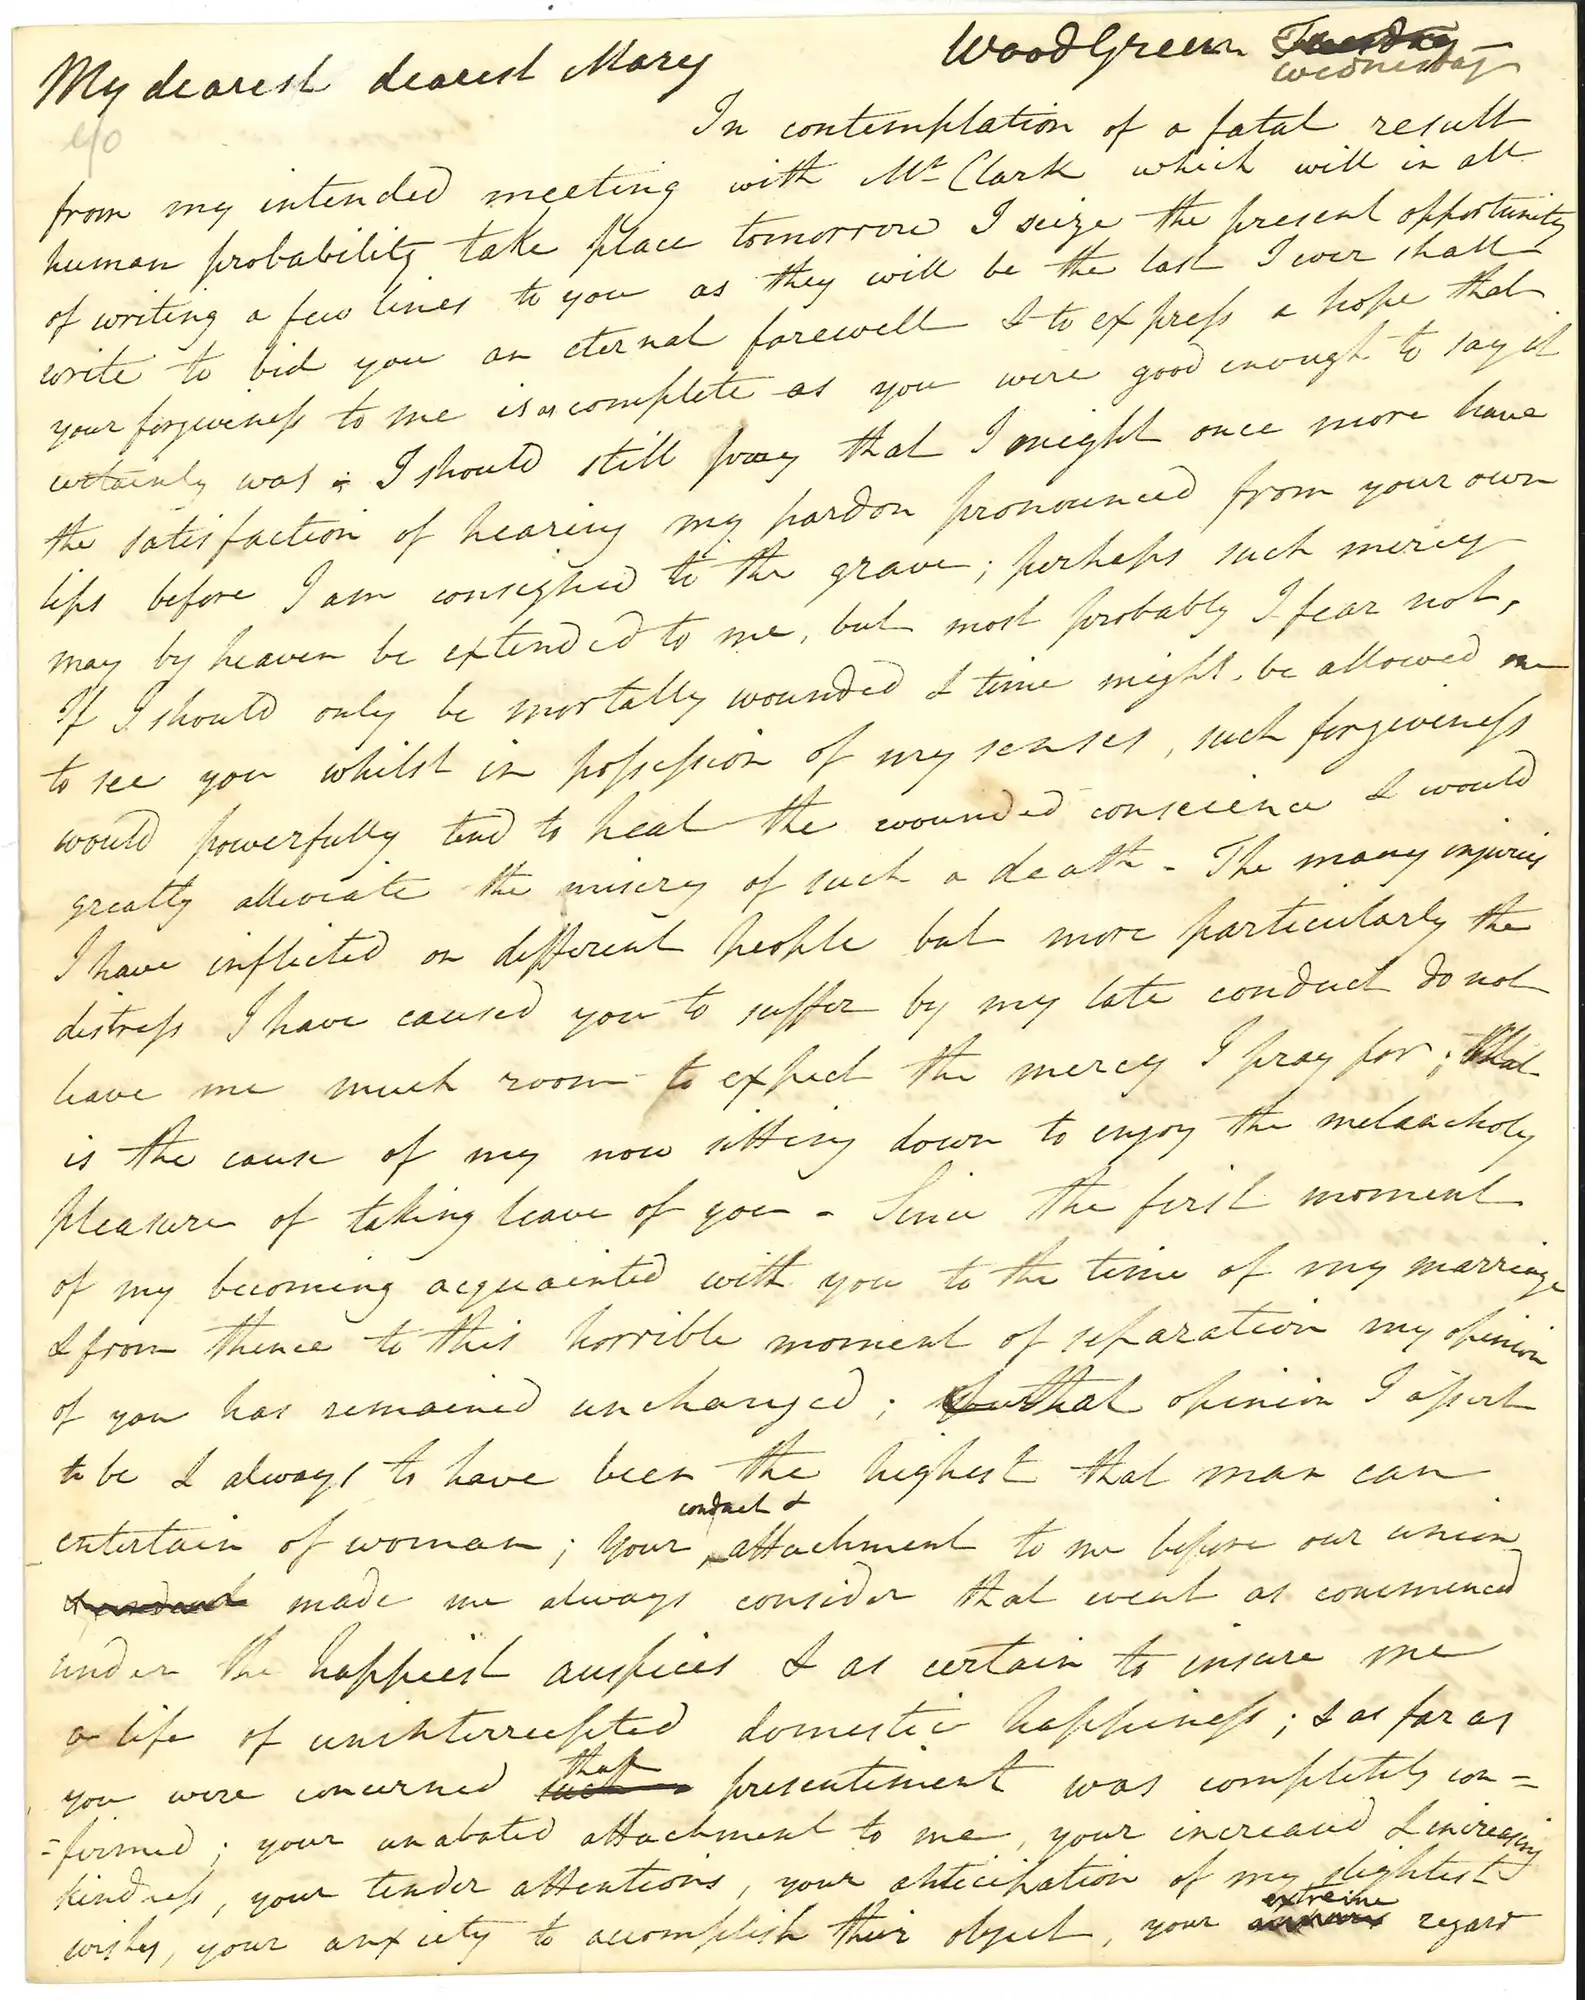 My dearest dearest Mary Wood Green Tuesday
Wednesday
In contemplation of a fatal result
from my intended meeting with Mr Clark which will in all
human probability take place tomorrow I seize the present opportunity
of writing a few lines to you as they will be the last I ever shall
write to bid you an eternal farewell & to express a hope that
your forgiveness to me is as complete as you were good enough to say it
certainly was; I should still pray that I might once more have
the satisfaction of hearing my pardon pronounced from your own
lips before I am consigned to the grave; perhaps such mercy
may by heaven be extended to me, but most probably I fear not,
If I should only be mortally wounded & time might be allowed me
to see you whilst in possession of my senses, such forgiveness
would powerfully tend to heal the wounded conscience & would
greatly alleviate the misery of such a death - The many injuries
I have inflicted on different people but more particularly the
distress I have caused you to suffer by my late conduct do not
leave me much room to expect the mercy I pray for; that
is the cause of my now sitting down to enjoy the melancholy
pleasure of taking leave of you - Since the first moment
of my becoming acquainted with you to the time of my marriage
& from thence to this horrible moment of separation my opinion
of you has remained unchanged; that opinion I assert
to be & always to have been the highest that man can
conduct &
entertain of woman; your attachment to me before our union
& conduct made me always consider that event as commenced
under the happiest auspices & as certain to insure me
a life of uninterrupted domestic happiness; & as far as
that
you were concerned such presentiment was completely con=
=firmed; your unabated attachment to me, your increased & increasing
kindness, your tender attentions, your anticipation of my slightest
extreme
wishes, your anxiety to accomplish their object, your anxious regard